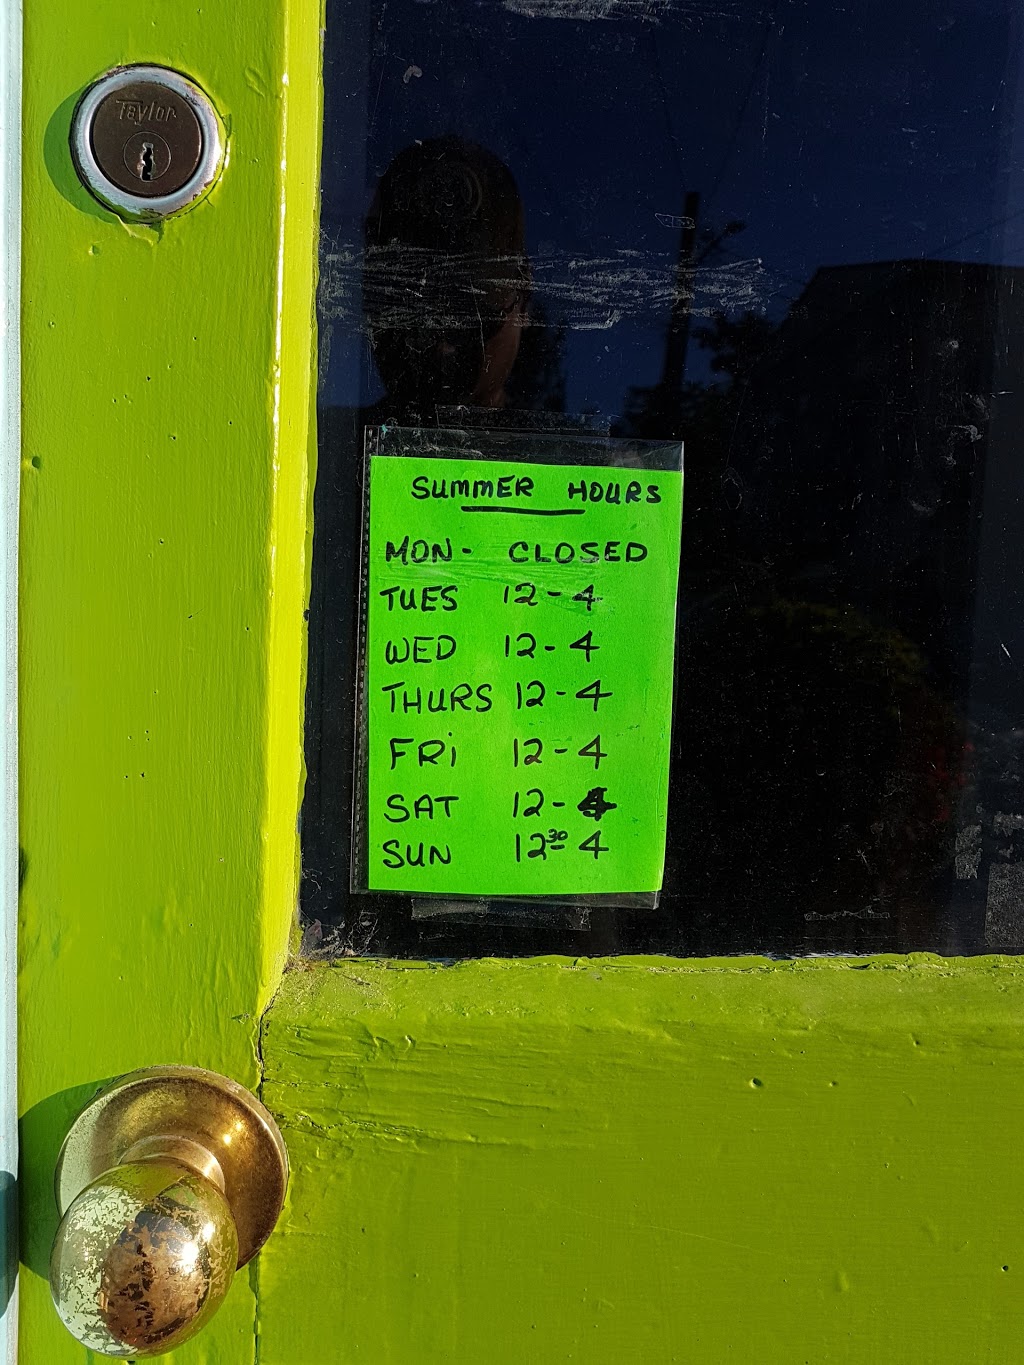 Taylor
SUMMER HOURS
MON- CLOSED
TUES 12-4
WED 12-4
THURS 12-4
FRi 12-4
SAT 12-4
SUN 12³⁰ 4